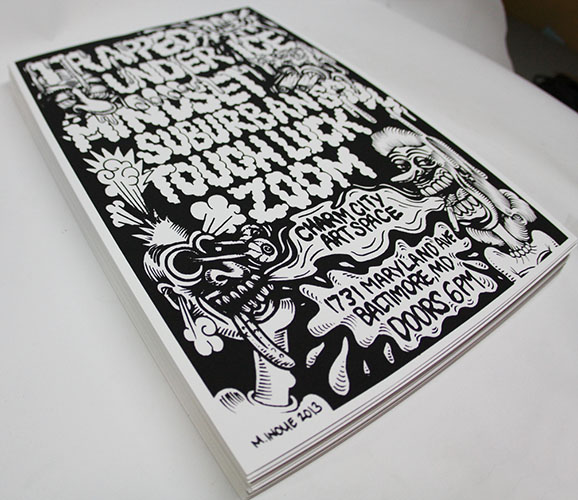 TRAPPED
UNDER ICE
MINDSET
SUBURBAN
TOUGH LUCK
ZOOM
CHARM CITY
ART SPACE
1731 MARYLAND AVE
BALTIMORE MD
DOORS 6PM
M. INOUE 2013